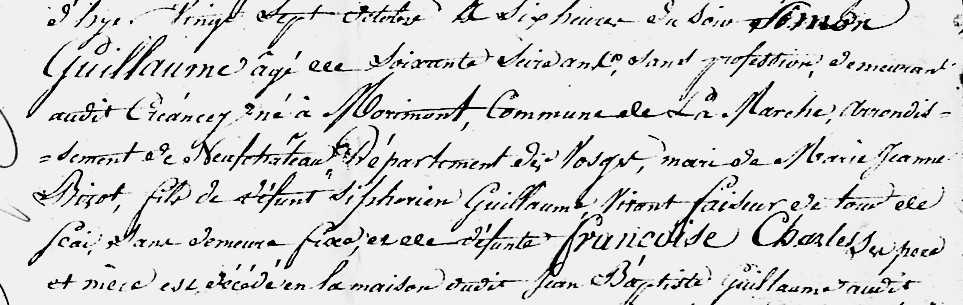 d'hyer Vingt sept octobre à six heures du soir Simon
Guillaume âgé de soixante seize ans, sans profession, demeurant
audit Créancey, né à Morimont, Commune de La Marche, arrondis-
-sement de Neufchâteau, Département des Vosges, mari de Marie Jeanne
Bizot, fils de défunt Siphorien Guillaume, Vivant faiseur de tour de
scai, sans demeure fixe, et de défunte françoise Charles, ses pere
et mère est décédé en la maison dudit Jean Baptiste Guillaume audit